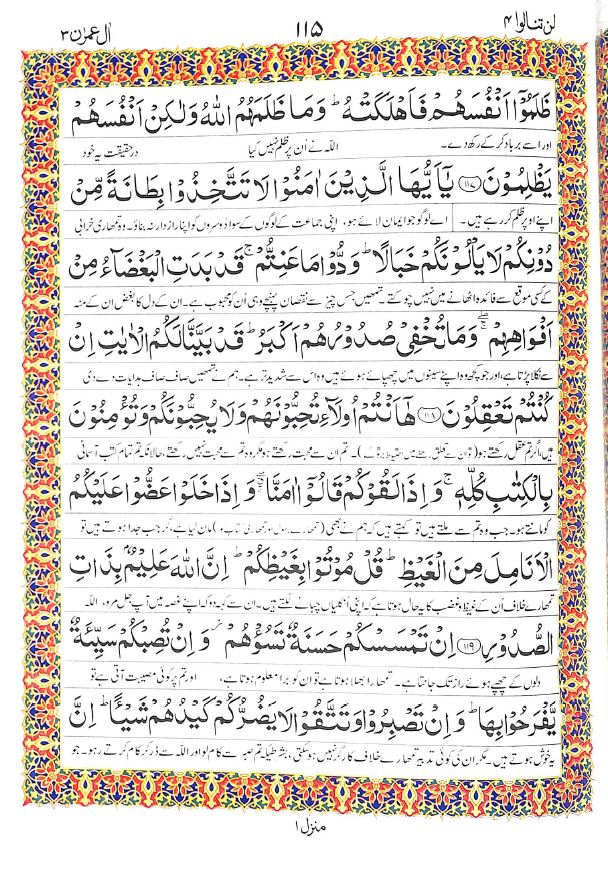 لن تنالوا ۴ ۱۱۵ اٰل عمرٰن ۳
ظَلَمُوْۤا اَنْفُسَهُمْ فَاَهْلَكَتْهُ ؕ وَمَا ظَلَمَهُمُ اللّٰهُ وَلٰكِنْ اَنْفُسَهُمْ
اور اسے برباد کر کے رکھ دے۔ اللہ نے اُن پر ظلم نہیں کیا درحقیقت یہ خود
يَظْلِمُوْنَ ﴿۱۱۷﴾ يٰۤاَيُّهَا الَّذِيْنَ اٰمَنُوْا لَا تَتَّخِذُوْا بِطَانَةً مِّنْ
اپنے اوپر ظلم کر رہے ہیں۔ اے لوگو جو ایمان لائے ہو، اپنی جماعت کے لوگوں کے سوا دوسروں کو اپنا راز دار نہ بناؤ۔ وہ تمھاری خرابی
دُوْنِكُمْ لَا يَاْلُوْنَكُمْ خَبَالًا ؕ وَدُّوْا مَا عَنِتُّمْ ۚ قَدْ بَدَتِ الْبَغْضَآءُ مِنْ
کے کسی موقع سے فائدہ اٹھانے میں نہیں چوکتے۔ تمھیں جس چیز سے نقصان پہنچے وہی اُن کو محبوب ہے۔ ان کے دل کا بغض ان کے منہ
اَفْوَاهِهِمْ ۖۚ وَمَا تُخْفِيْ صُدُوْرُهُمْ اَكْبَرُ ؕ قَدْ بَيَّنَّا لَكُمُ الْاٰيٰتِ اِنْ
سے نکلا پڑتا ہے، اور جو کچھ وہ اپنے سینوں میں چھپائے ہوئے ہیں وہ اس سے شدید تر ہے۔ ہم نے تمھیں صاف صاف ہدایات دے دی
كُنْتُمْ تَعْقِلُوْنَ ﴿۱۱۸﴾ هٰۤاَنْتُمْ اُولَآءِ تُحِبُّوْنَهُمْ وَلَا يُحِبُّوْنَكُمْ وَتُؤْمِنُوْنَ
ہیں، اگر تم عقل رکھتے ہو (تو ان سے تعلق رکھنے میں احتیاط برتو گے)۔ تم ان سے محبت رکھتے ہو مگر وہ تم سے محبت نہیں رکھتے، حالانکہ تم تمام کتب آسمانی
بِالْكِتٰبِ كُلِّهٖ ۚ وَاِذَا لَقُوْكُمْ قَالُوْۤا اٰمَنَّا ۖۗ وَاِذَا خَلَوْا عَضُّوْا عَلَيْكُمُ
کو مانتے ہو۔ جب وہ تم سے ملتے ہیں تو کہتے ہیں کہ ہم نے بھی (تمھارے رسول اور تمھاری کتاب کو) مان لیا ہے، مگر جب جدا ہوتے ہیں تو
الْاَنَامِلَ مِنَ الْغَيْظِ ؕ قُلْ مُوْتُوْا بِغَيْظِكُمْ ؕ اِنَّ اللّٰهَ عَلِيْمٌۢ بِذَاتِ
تمھارے خلاف اُن کے غیظ و غضب کا یہ حال ہوتا ہے کہ اپنی انگلیاں چبانے لگتے ہیں۔ ان سے کہہ دو کہ اپنے غصہ میں آپ جل مرو، اللہ
الصُّدُوْرِ ﴿۱۱۹﴾ اِنْ تَمْسَسْكُمْ حَسَنَةٌ تَسُؤْهُمْ ؗ وَاِنْ تُصِبْكُمْ سَيِّئَةٌ
دلوں کے چھپے ہوئے راز تک جانتا ہے۔ تمھارا بھلا ہوتا ہے تو ان کو برا معلوم ہوتا ہے، اور تم پر کوئی مصیبت آتی ہے تو
يَّفْرَحُوْا بِهَا ؕ وَاِنْ تَصْبِرُوْا وَتَتَّقُوْا لَا يَضُرُّكُمْ كَيْدُهُمْ شَيْـًٔا ؕ اِنَّ
یہ خوش ہوتے ہیں۔ مگر ان کی کوئی تدبیر تمھارے خلاف کارگر نہیں ہو سکتی، بشرطیکہ تم صبر سے کام لو اور اللہ سے ڈر کر کام کرتے رہو۔ جو
منزل ۱